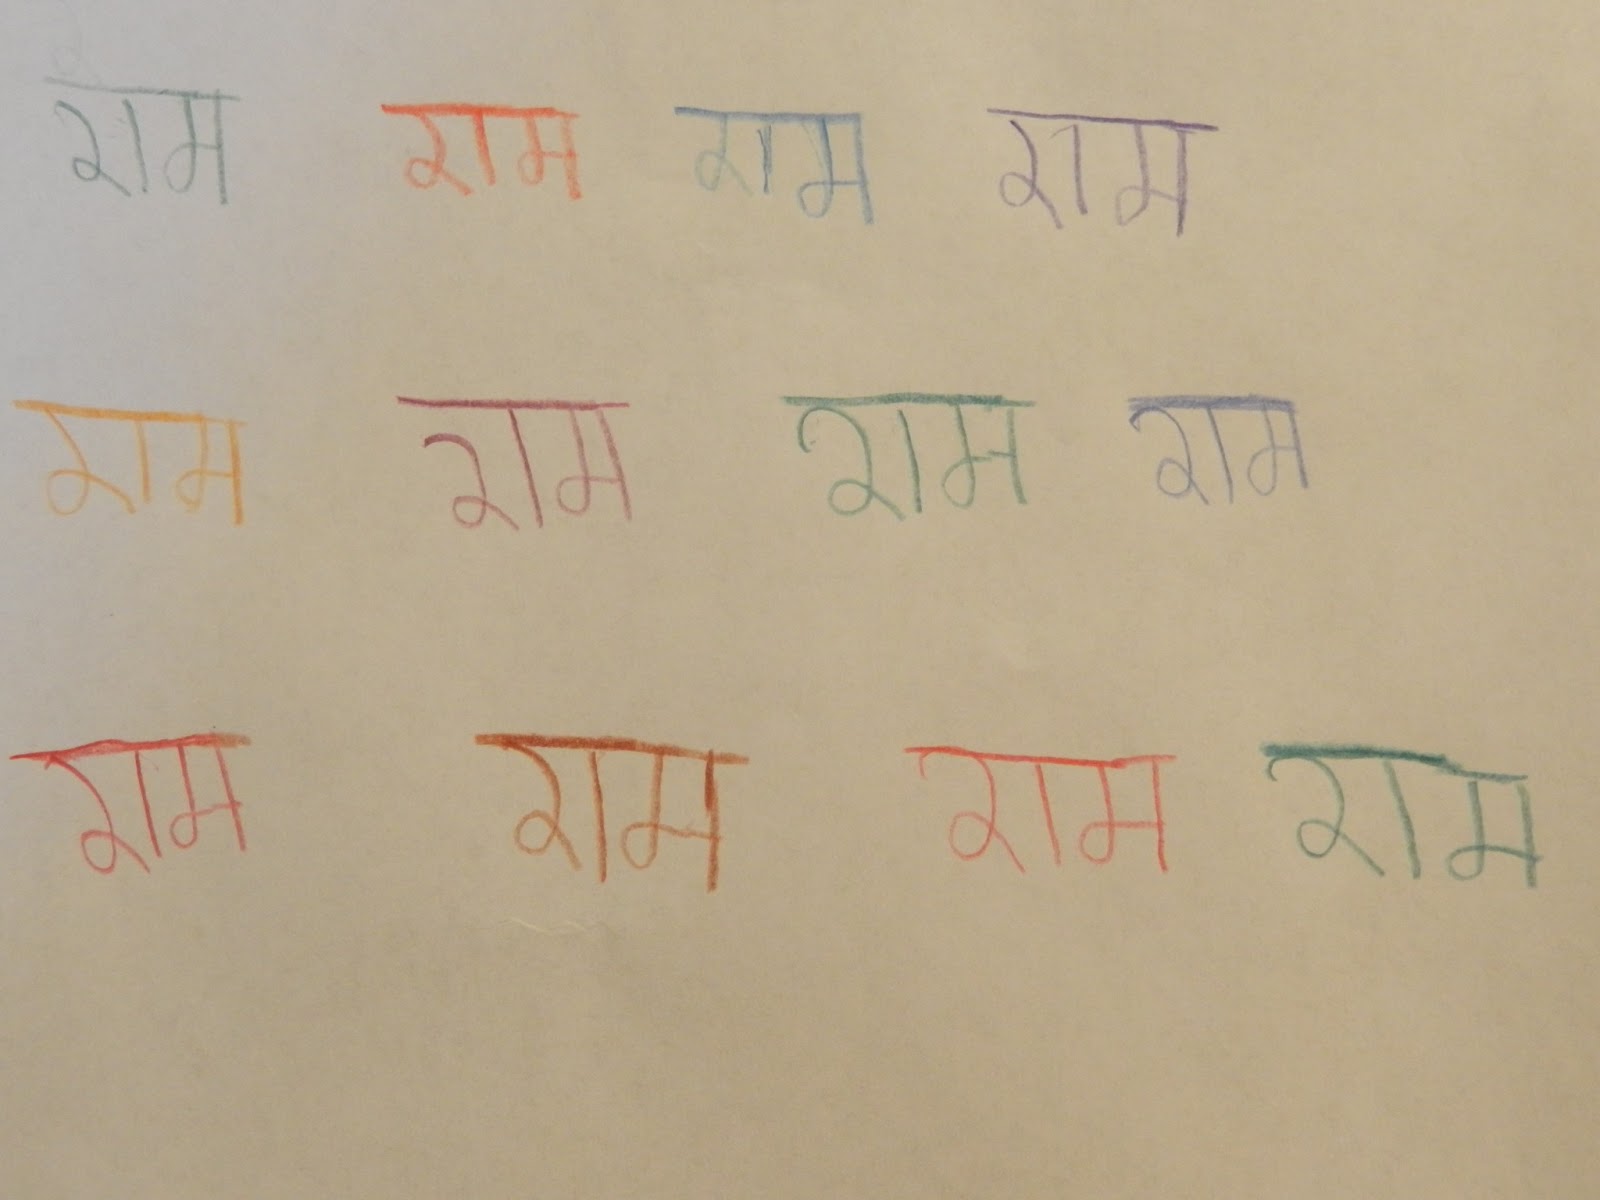 राम राम राम राम
राम राम राम राम
राम राम राम राम